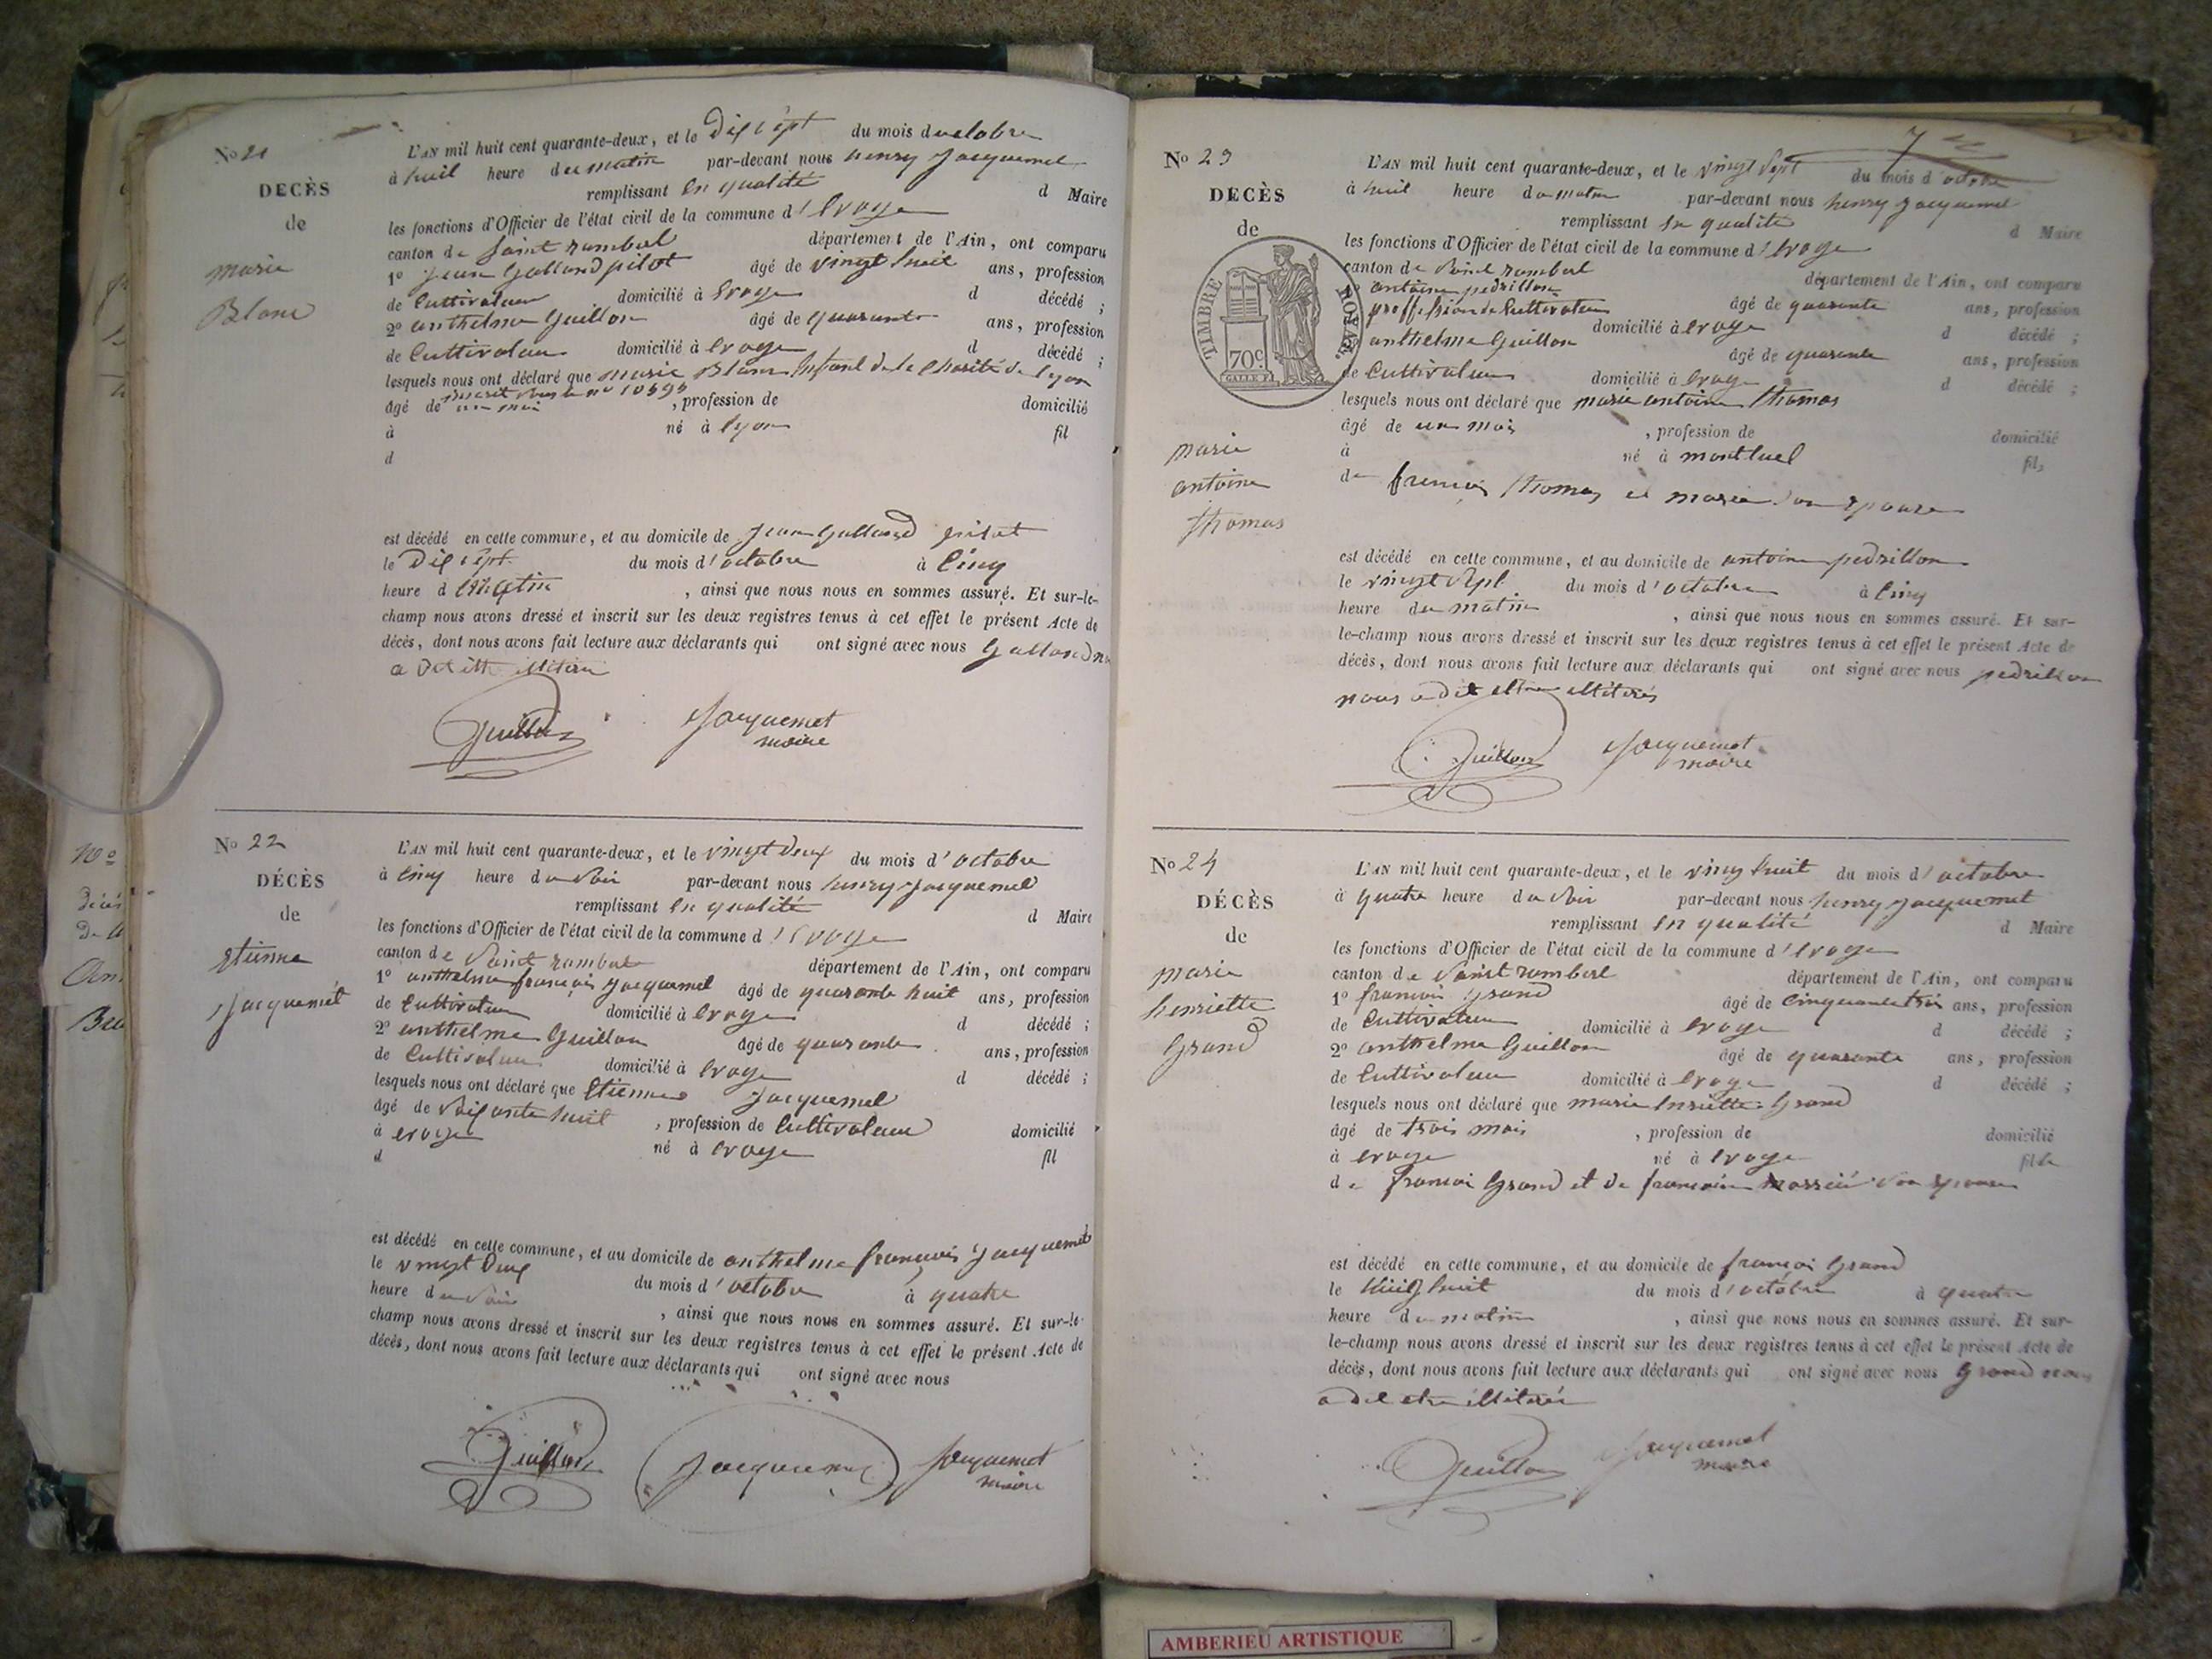 No 21
DECÈS
de
marie
Blanc
L'AN mil huit cent quarante-deux, et le Dix sept du mois d'octobre
à huit heure du matin par-devant nous henry Jacquemet
remplissant en qualité d Maire
les fonctions d'Officier de l'état civil de la commune d' Evoge
canton de Saint rambert département de l'Ain, ont comparu
1º Jean Galland pilot âgé de vingt huit ans, profession
de Cultivateur domicilié à Evoge d décédé ;
2º anthelme Guillon âgé de quarante ans, profession
de Cultivateur domicilié à Evoge d décédé ;
lesquels nous ont déclaré que marie Blanc Enfant de la Charité de lyon
inscrit sous le nº
âgé de un moi , profession de domicilié
à né à lyon fil
d
est décédé en cette commune, et au domicile de Jean Galland pilot
le Dix sept du mois d'octobre à Cinq
heure d matin , ainsi que nous nous en sommes assuré. Et sur-le-
champ nous avons dressé et inscrit sur les deux registres tenus à cet effet le présent Acte de
décès, dont nous avons fait lecture aux déclarants qui ont signé avec nous Galland
a dit
Guillon Jacquemet
maire
No 22
DÉCÈS
de
Etienne
Jacquemet
L'AN mil huit cent quarante-deux, et le vingt deux du mois d'octobre
à Cinq heure du soir par-devant nous henry Jacquemet
remplissant en qualité d Maire
les fonctions d'Officier de l'état civil de la commune d' Evoge
canton de Saint rambert département de l'Ain, ont comparu
1º anthelme françois Jacquemet âgé de quarante huit ans, profession
de Cultivateur domicilié à Evoge d décédé ;
2º anthelme Guillon âgé de quarante ans, profession
de Cultivateur domicilié à Evoge d décédé ;
lesquels nous ont déclaré que Etienne Jacquemet
âgé de Soixante huit , profession de Cultivateur domicilié
à evoge né à evoge fil
d
est décédé en cette commune, et au domicile de anthelme françois Jacquemet
le vingt Deux du mois d'octobre à quatre
heure du soir , ainsi que nous nous en sommes assuré. Et sur-le-
champ nous avons dressé et inscrit sur les deux registres tenus à cet effet le présent Acte de
décès, dont nous avons fait lecture aux déclarants qui ont signé avec nous
Guillon Jacquemet Jacquemet
maire
No 23
DECÈS
de
TIMBRE ROYAL
70 c.
marie
antoine
thomas
L'AN mil huit cent quarante-deux, et le vingt Sept du mois d'octobre
à huit heure du matin par-devant nous henry Jacquemet
remplissant en qualité d Maire
les fonctions d'Officier de l'état civil de la commune d' Evoge
canton de Saint rambert département de l'Ain, ont comparu
antoine pedrillon
proffession de Cultivateur âgé de quarante ans, profession
domicilié à evoge d décédé ;
anthelme Guillon âgé de quarante ans, profession
de Cultivateur domicilié à Evoge d décédé ;
lesquels nous ont déclaré que marie antoine thomas
âgé de un mois , profession de domicilié
à né à montluel fils
de françois thomas et marie son epouse
est décédé en cette commune, et au domicile de antoine pedrillon
le vingt Sept du mois d'octobre à Cinq
heure du matin , ainsi que nous nous en sommes assuré. Et sur-
le-champ nous avons dressé et inscrit sur les deux registres tenus à cet effet le présent Acte de
décès, dont nous avons fait lecture aux déclarants qui ont signé avec nous pedrillon
nous a dit
Guillon Jacquemet
maire
No 24
DÉCÈS
de
marie
henriette
Grand
L'AN mil huit cent quarante-deux, et le vingt huit du mois d'octobre
à quatre heure du soir par-devant nous henry Jacquemet
remplissant en qualité d Maire
les fonctions d'Officier de l'état civil de la commune d' Evoge
canton de Saint rambert département de l'Ain, ont comparu
1º françois Grand âgé de Cinquante trois ans, profession
de Cultivateur domicilié à evoge d décédé ;
2º anthelme Guillon âgé de quarante ans, profession
de Cultivateur domicilié à Evoge d décédé ;
lesquels nous ont déclaré que marie henriette Grand
âgé de trois mois , profession de domicilié
à evoge né à Evoge fille
de françoi Grand et de son epouse
est décédé en cette commune, et au domicile de françoi Grand
le huit du mois d'octobre à quatre
heure du matin , ainsi que nous nous en sommes assuré. Et sur-
le-champ nous avons dressé et inscrit sur les deux registres tenus à cet effet le présent Acte de
décès, dont nous avons fait lecture aux déclarants qui ont signé avec nous Grand nous
a dit
Guillon Jacquemet
maire
AMBERIEU ARTISTIQUE